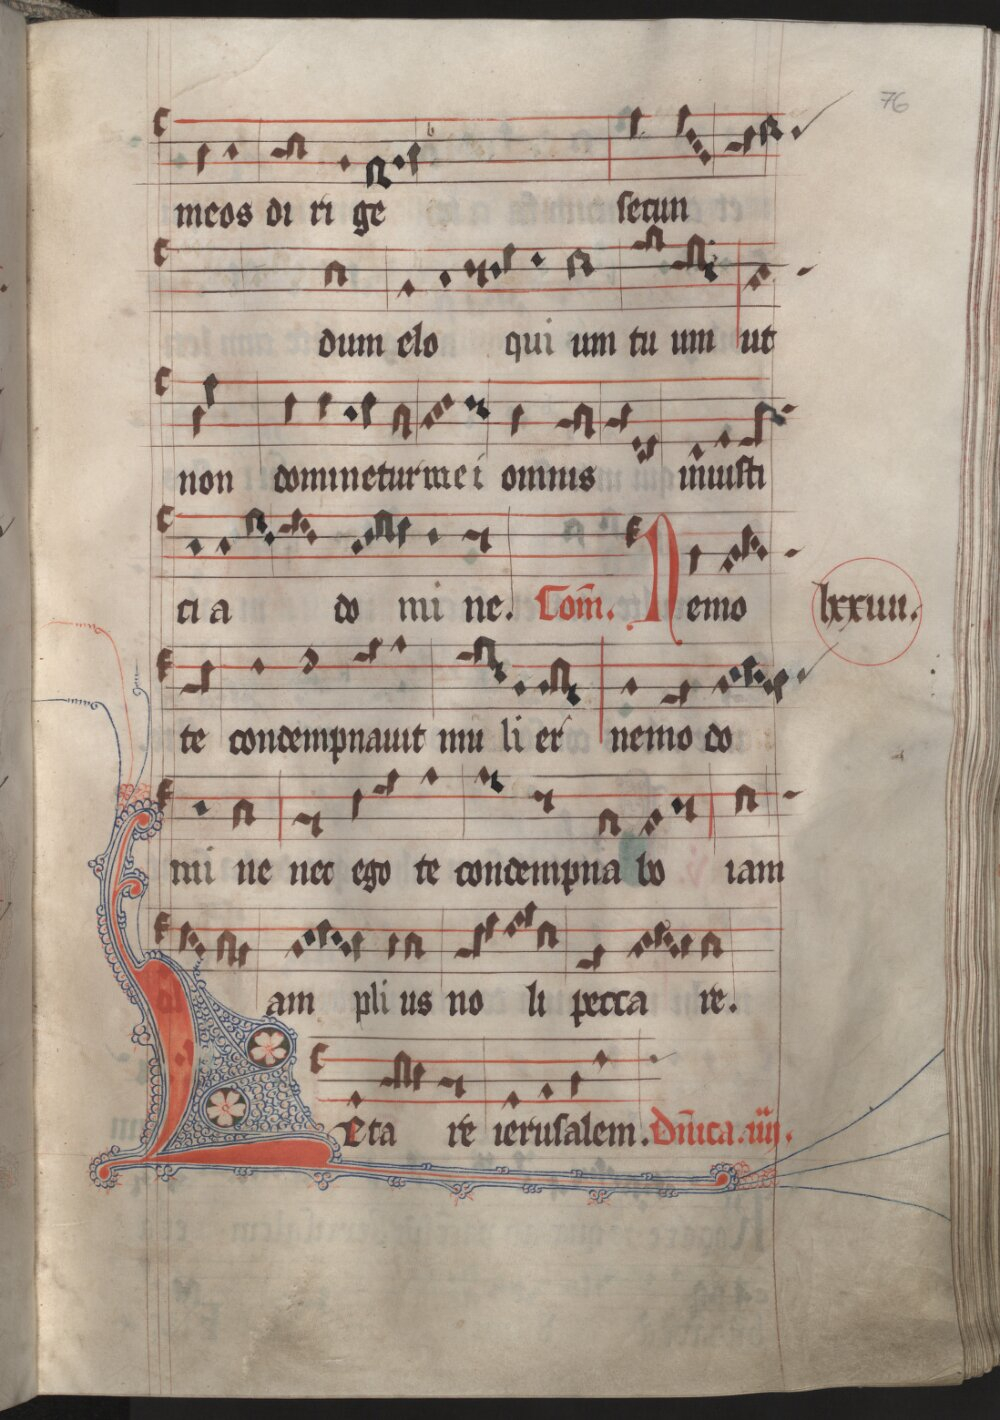 76
meos di ri ge secun
dum elo qui um tu um ut
non domineturmei omnis iniusti
cia do mi ne. Com̄. Nemo lxxiiii.
te condempnauit mu li er nemo do
mi ne nec ego te condempna bo iam
am pli us no li pecca re.
Leta re ierusalem. Dn̄ica.iiij.